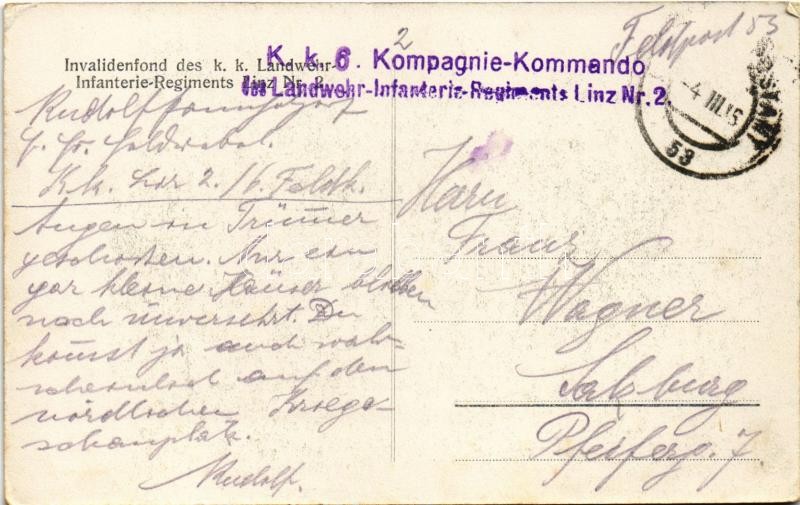 Feldpost 53
2
Invalidenfond des k. k. Landwehr-
Infanterie-Regiments Linz Nr. 2.
K. k. 6. Kompagnie-Kommando
des Landwehr-Infanterie-Regiments Linz Nr. 2
-4 III 15
53
Rudolf
K.k. Lir 2./6. Feldk.
Augen in Trümmer
geschossen. Nur ein
par kleine Häuser blieben
noch unversehrt. Du
kommst ja auch wahr-
scheinlich auf den
nördlichen Kriegs-
schauplatz.
Rudolf.
Herrn
Franz
Wagner
Salzburg
Pfeiferg. 7